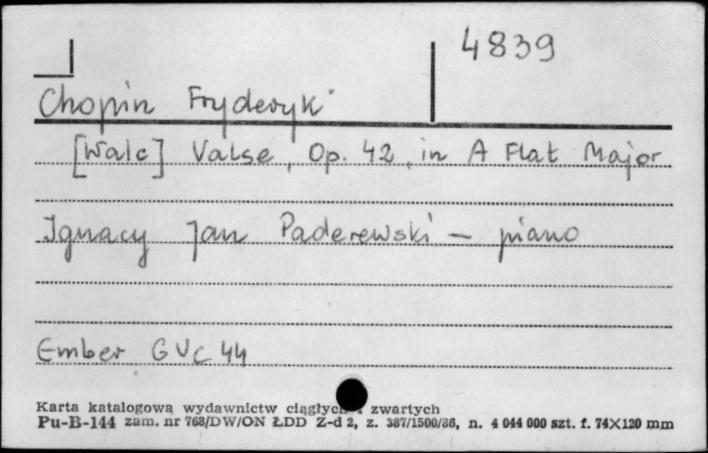 4839
Chopin Fryderyk
[Walc] Valse, Op. 42, in A Flat Major
Ignacy Jan Paderewski – piano
Ember GVC 44
Karta katalogowa wydawnictw ciągłych i zwartych
Pu-B-144 zam. nr 768/DW/ON ŁDD Z-d 2, z. 387/1500/86, n. 4 044 000 szt. f. 74X120 mm